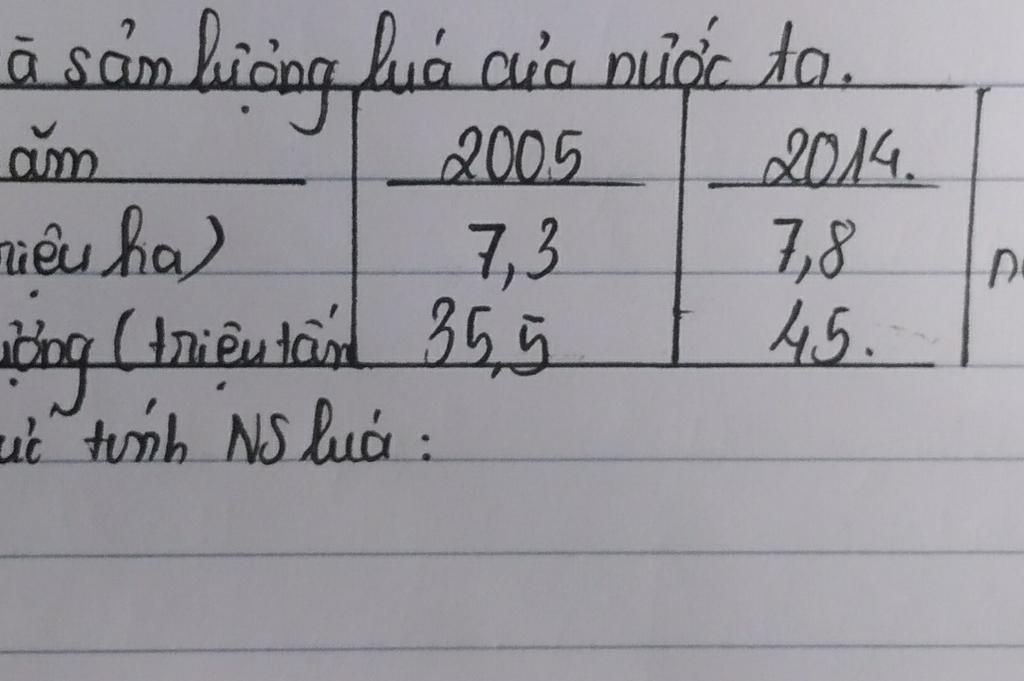 à sản lượng lúa của nước ta.
ăm 2005 2014.
riệu ha) 7,3 7,8
ượng (triệu tấn 35,5 45.
ức tính NS lúa: